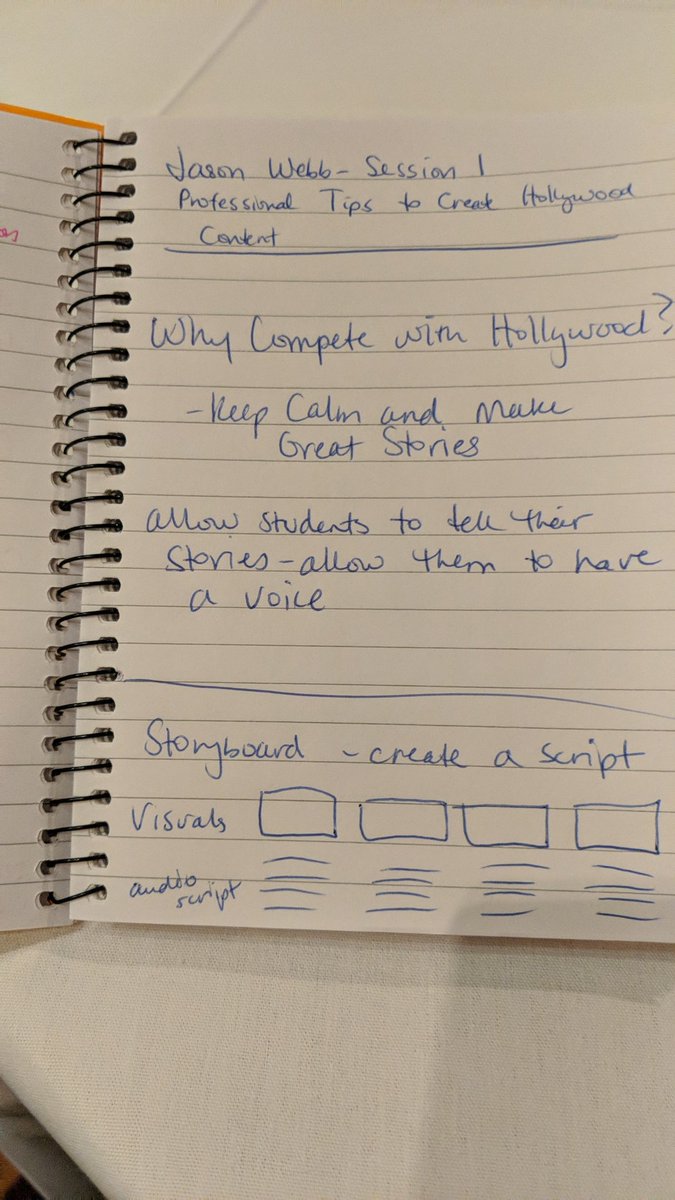 Jason Webb - Session 1
Professional Tips to Create Hollywood
Content
Why Compete with Hollywood?
- Keep Calm and Make
Great Stories
allow students to tell their
stories - allow them to have
a voice
Storyboard - create a script
Visuals
audio
script